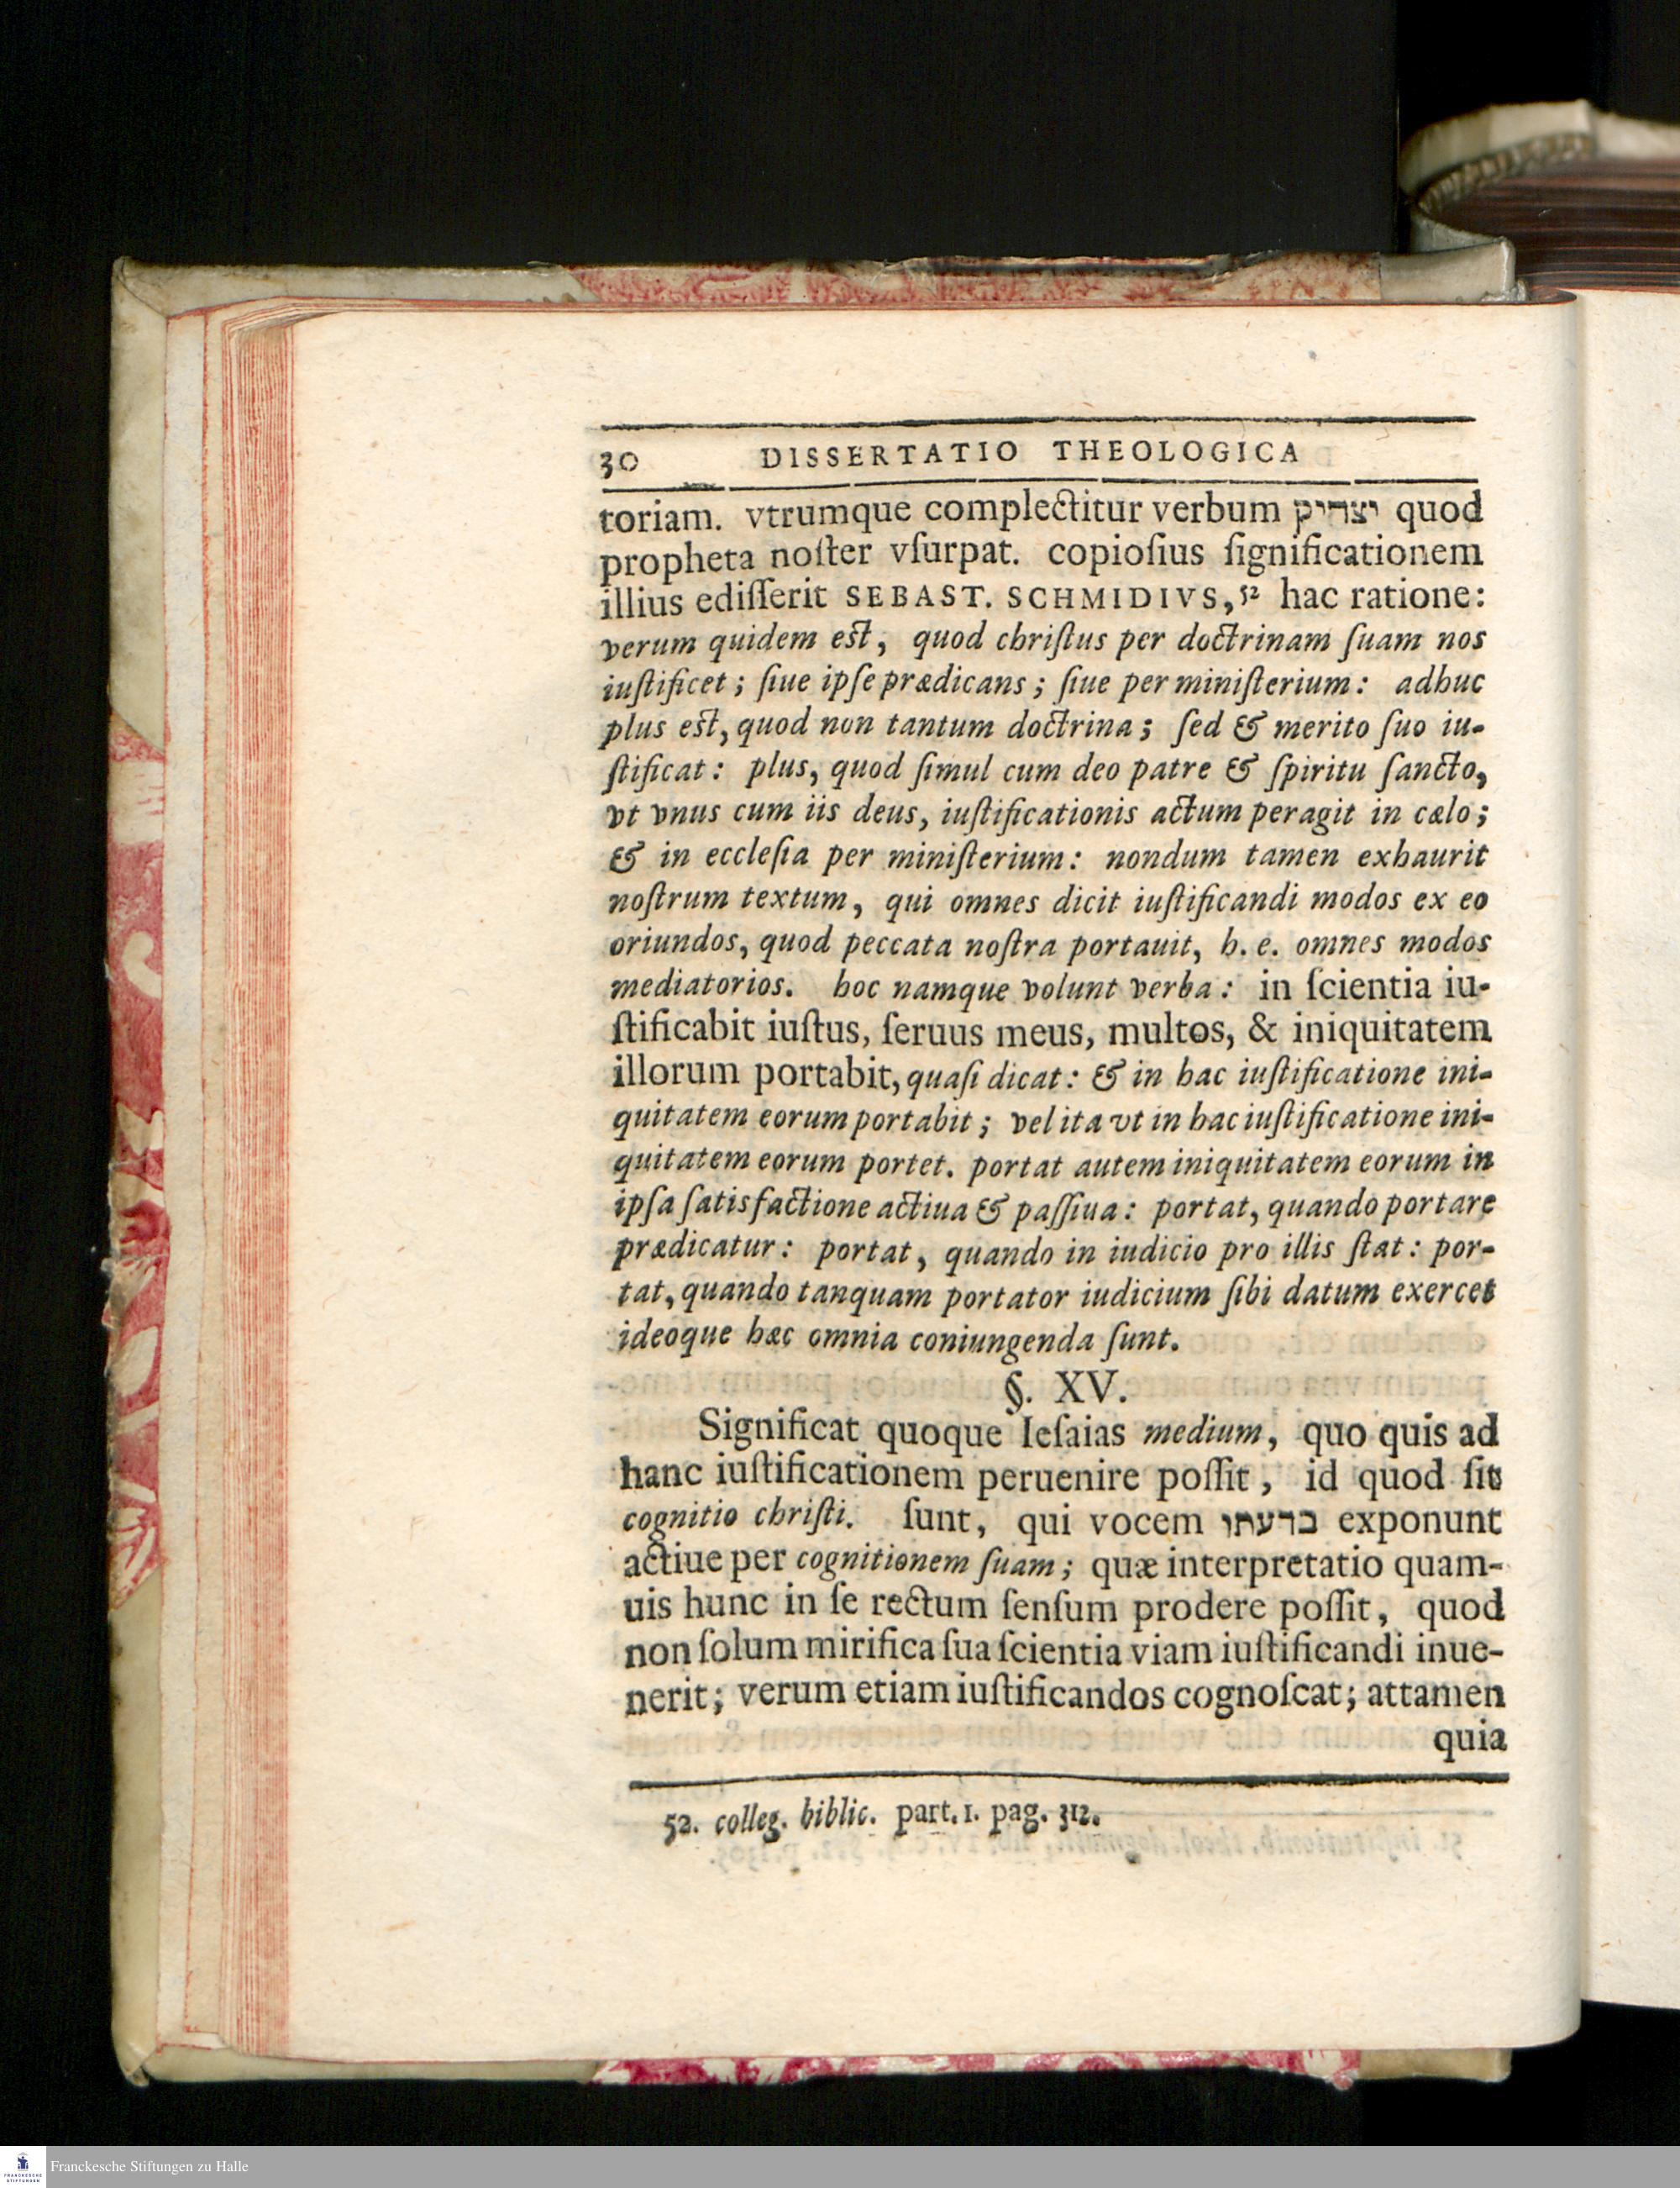 30 DISSERTATIO THEOLOGICA
toriam. vtrumque complectitur verbum יצדיק quod
propheta noſter vſurpat. copioſius ſignificationem
illius ediſſerit SEBAST. SCHMIDIVS,⁵² hac ratione:
verum quidem eſt, quod chriſtus per doctrinam ſuam nos
iuſtificet; ſiue ipſe prædicans; ſiue per miniſterium: adhuc
plus eſt, quod non tantum doctrina; ſed & merito ſuo iu-
ſtificat: plus, quod ſimul cum deo patre & ſpiritu ſancto,
vt vnus cum iis deus, iuſtificationis actum peragit in cælo;
& in eccleſia per miniſterium: nondum tamen exhaurit
noſtrum textum, qui omnes dicit iuſtificandi modos ex eo
oriundos, quod peccata noſtra portauit, h. e. omnes modos
mediatorios. hoc namque volunt verba: in ſcientia iu-
ſtificabit iuſtus, ſeruus meus, multos, & iniquitatem
illorum portabit, quaſi dicat: & in hac iuſtificatione ini-
quitatem eorum portabit; vel ita vt in hac iuſtificatione ini-
quitatem eorum portet. portat autem iniquitatem eorum in
ipſa ſatisfactione actiua & paſſiua: portat, quando portare
prædicatur: portat, quando in iudicio pro illis ſtat: por-
tat, quando tanquam portator iudicium ſibi datum exercet
ideoque hæc omnia coniungenda ſunt.
§. XV.
Significat quoque Ieſaias medium, quo quis ad
hanc iuſtificationem peruenire poſſit, id quod ſit
cognitio chriſti. ſunt, qui vocem ברעתו exponunt
actiue per cognitionem ſuam; quæ interpretatio quam-
uis hunc in ſe rectum ſenſum prodere poſſit, quod
non ſolum mirifica ſua ſcientia viam iuſtificandi inue-
nerit; verum etiam iuſtificandos cognoſcat; attamen
quia
52. colleg. biblic. part. 1. pag. 312.
FRANCKESCHE
STIFTUNGEN
Franckesche Stiftungen zu Halle